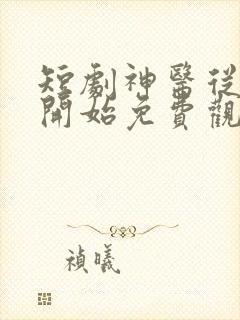 短劇神醫從
開始免費觀
禎曦